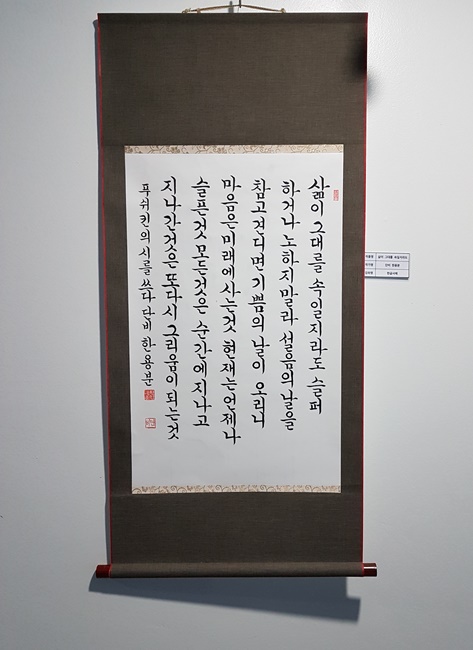 삶이 그대를 속일지라도 슬퍼
하거나 노하지말라 설음의 날을
참고 견디면 기쁨의 날이 오리니
마음은 미래에 사는것 현재는 언제나
슬픈것 모든것은 순간에 지나고
지나간것은 또다시 그리움이 되는것
푸쉬킨의 시를 쓰다 단비 한용분